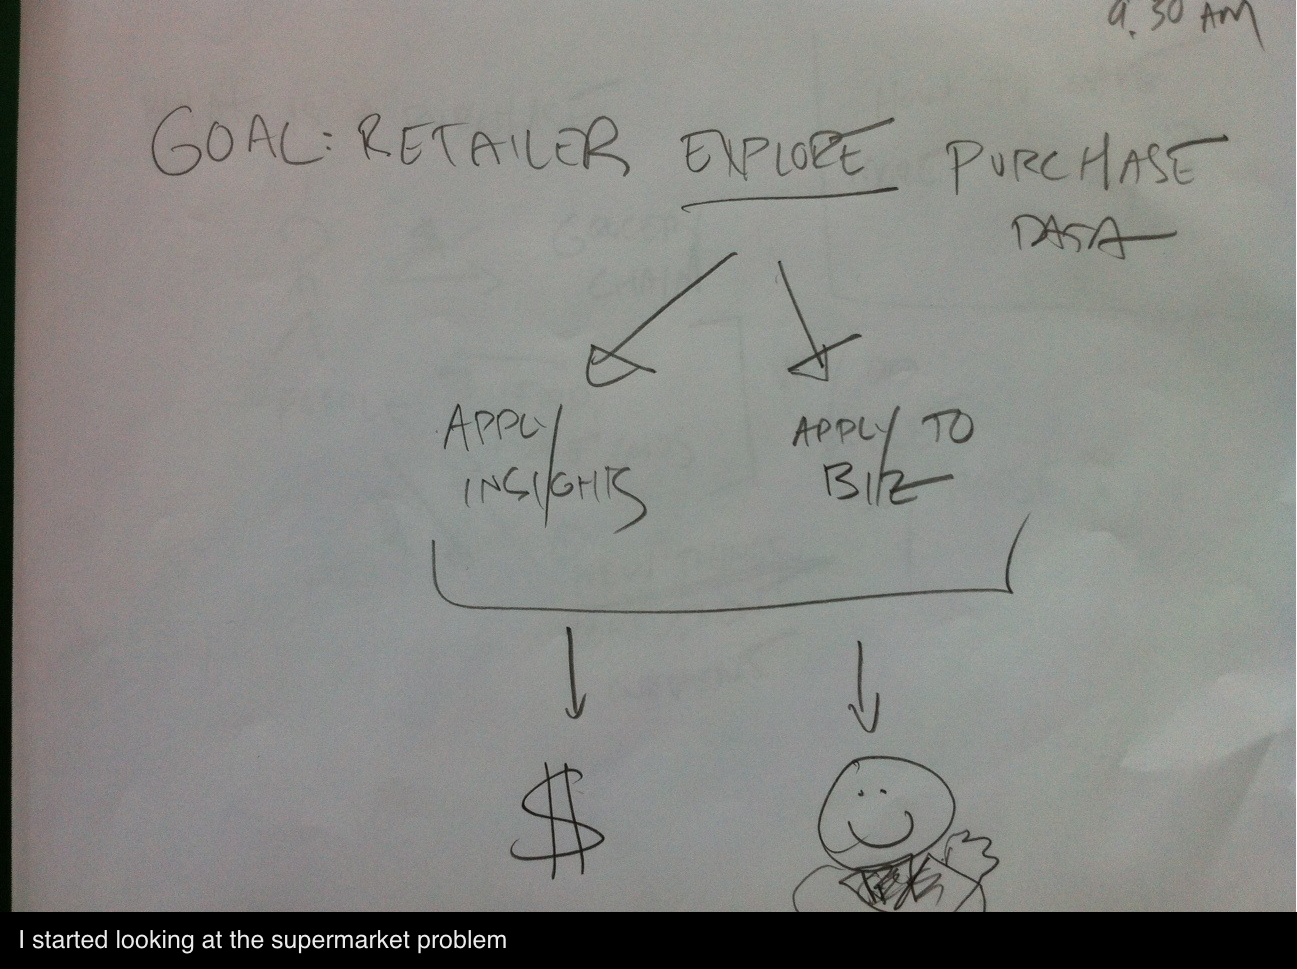 9.30 AM
GOAL: RETAILER EXPLORE PURCHASE
DATA
APPLY
INSIGHTS
APPLY TO
BIZ
$
I started looking at the supermarket problem